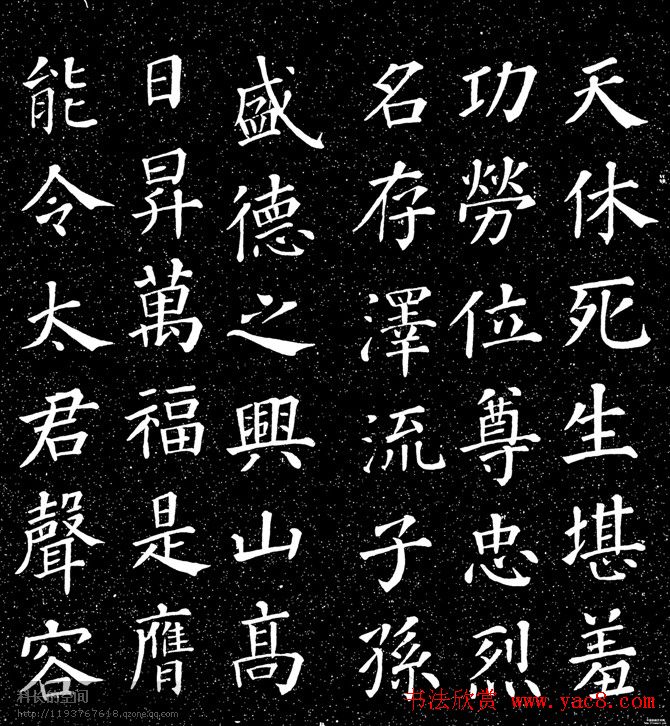 天休死生堪羞
功勞位尊忠烈
名存澤流子孫
盛德之興山高
日昇萬福是膺
能令太君聲容
科长的空间
http://1193767618.qzone.qq.com
书法欣赏 www.yac8.com